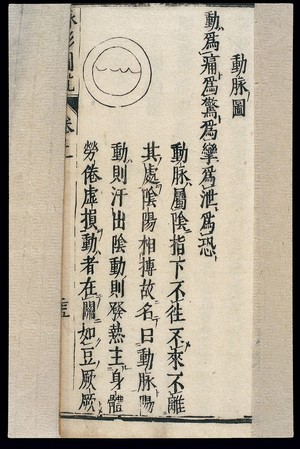 動脉圖
動為痛為驚為攣為泄為恐
動脉屬陰指下不往不來不離
其處陰陽相搏故名曰動脉陽
動則汗出陰動則發熱主身體
勞倦虛損動者在關如豆厥厥